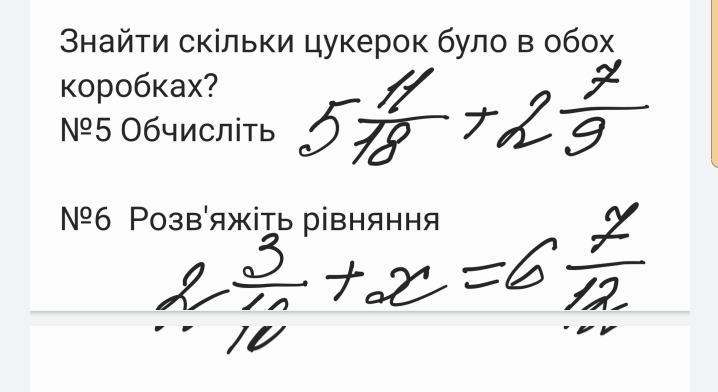 Знайти скільки цукерок було в обох
коробках?
№5 Обчисліть 5 11/18 + 2 7/9
№6 Розв'яжіть рівняння
2 3/10 + x = 6 7/12